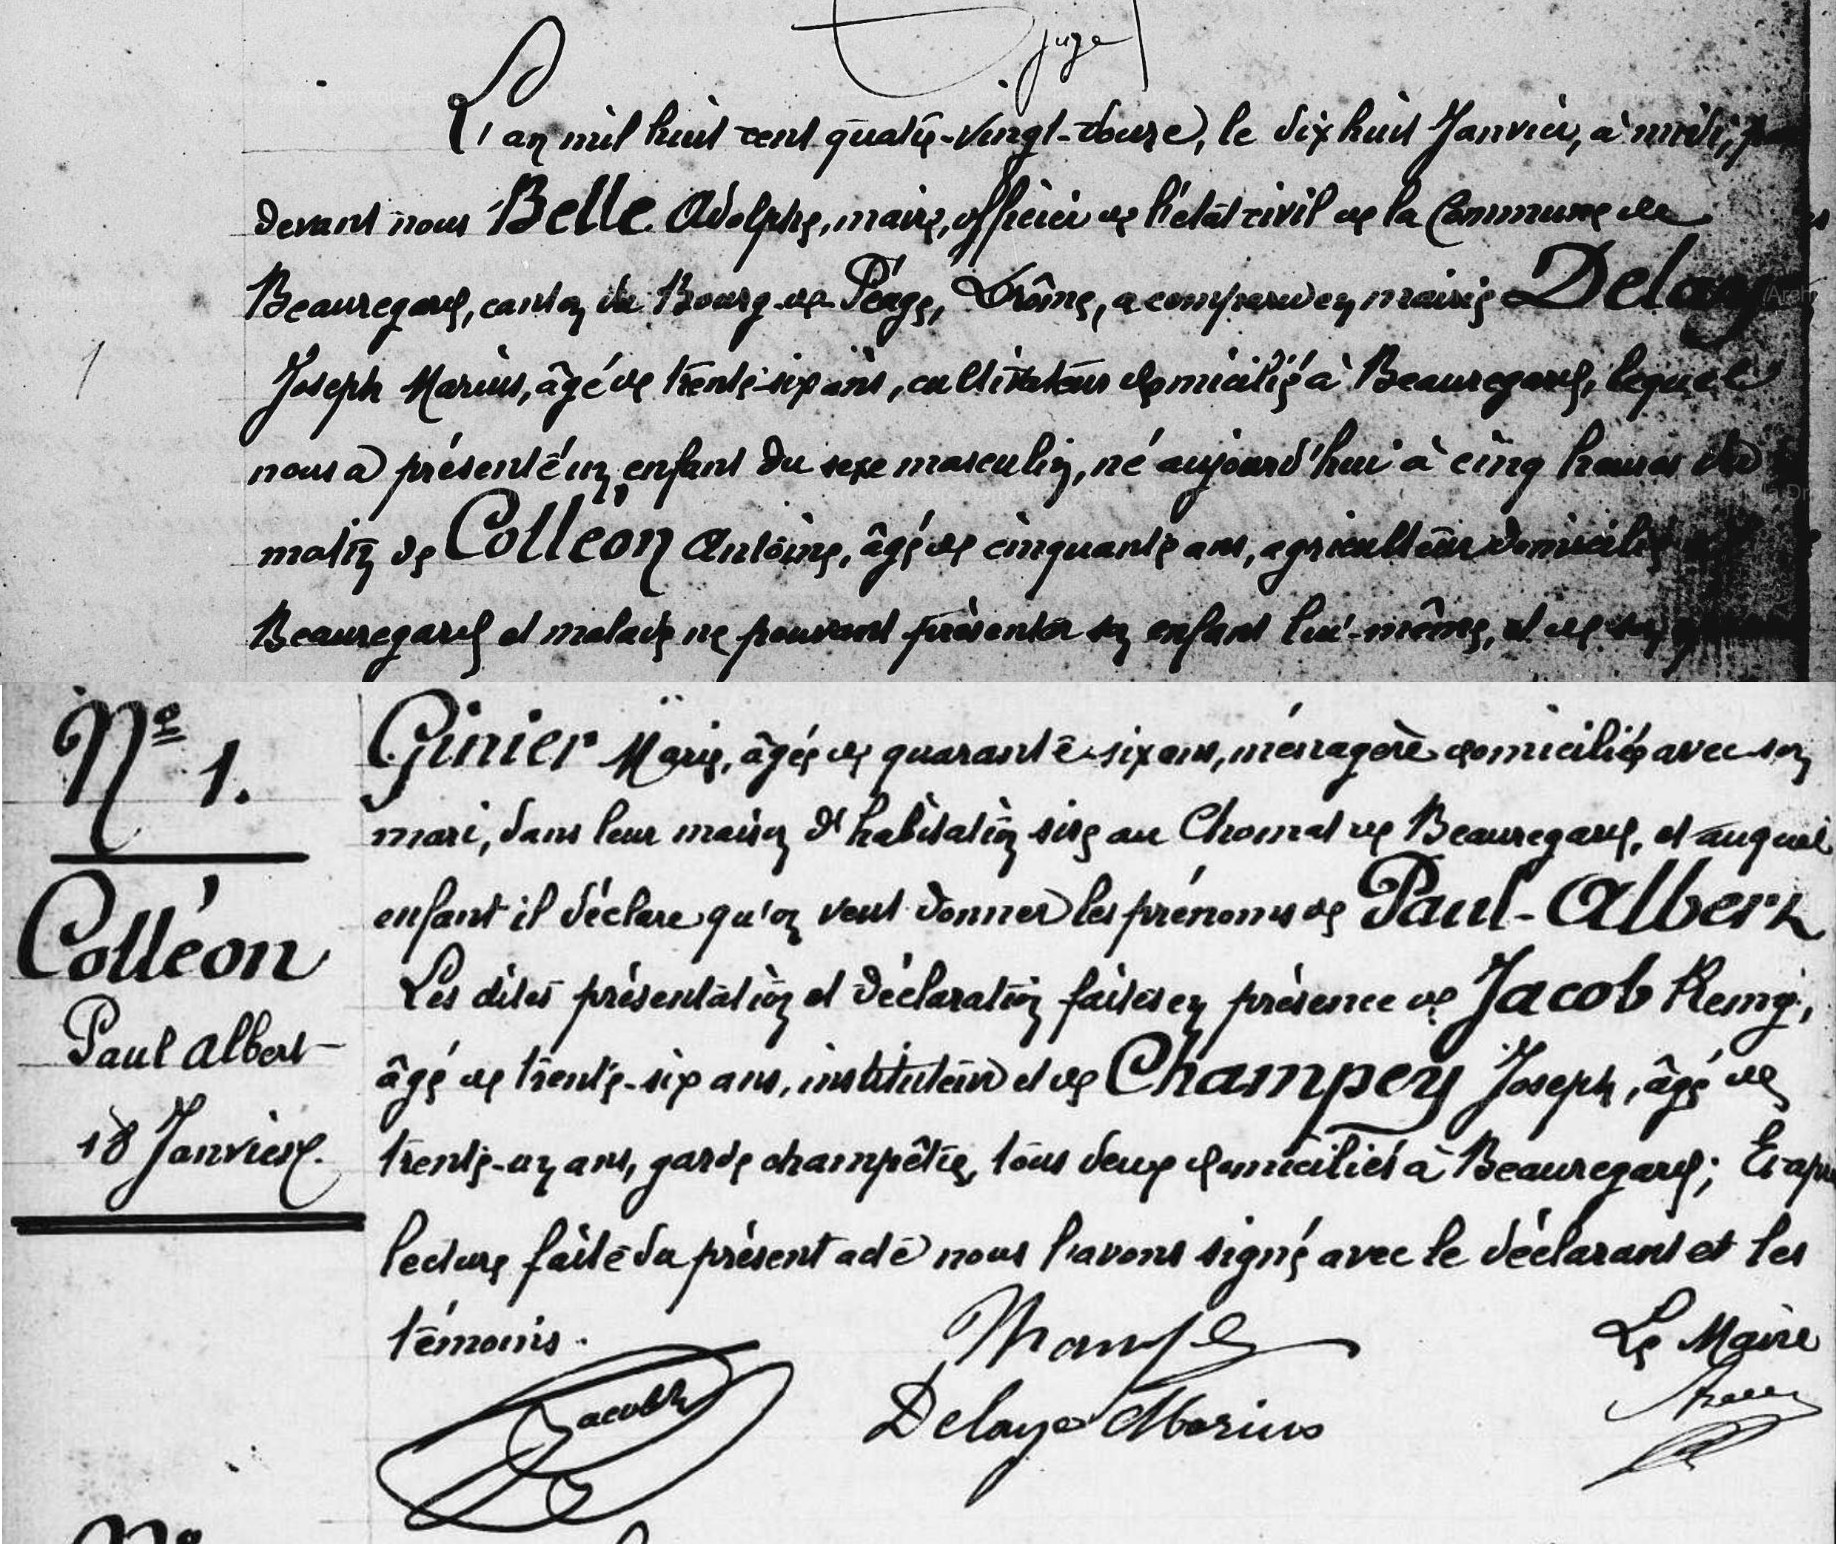 juge
L'an mil huit cent quatre-vingt-douze, le dix huit Janvier, à midi, par
devant nous Belle Adolphe, maire, officier de l'état civil de la Commune de
Beauregard, canton du Bourg-de-Péage, Drôme, a comparu en mairie Delaye
Joseph Marius, âgé de trente-six ans, cultivateur domicilié à Beauregard, lequel
nous a présenté un enfant du sexe masculin, né aujourd'hui à cinq heures du
matin de Colléon Antoine, âgé de cinquante ans, agriculteur domicilié
Beauregard et malade ne pouvant présenter son enfant lui-même, et de son
N° 1.
Colléon
Paul Albert
18 Janvier.
Ginier Marie, âgée de quarante-six ans, ménagère domiciliée avec son
mari, dans leur maison d'habitation sise au Chomat de Beauregard, et auquel
enfant il déclare qu'on veut donner les prénoms de Paul-Albert
Les dites présentation et déclaration faites en présence de Jacob Remy,
âgé de trente-six ans, instituteur et de Champey Joseph, âgé de
trente-un ans, garde champêtre, tous deux domiciliés à Beauregard; Et après
lecture faite du présent acte nous l'avons signé avec le déclarant et les
témoins.
Le Maire
Jacob
Delaye Marius